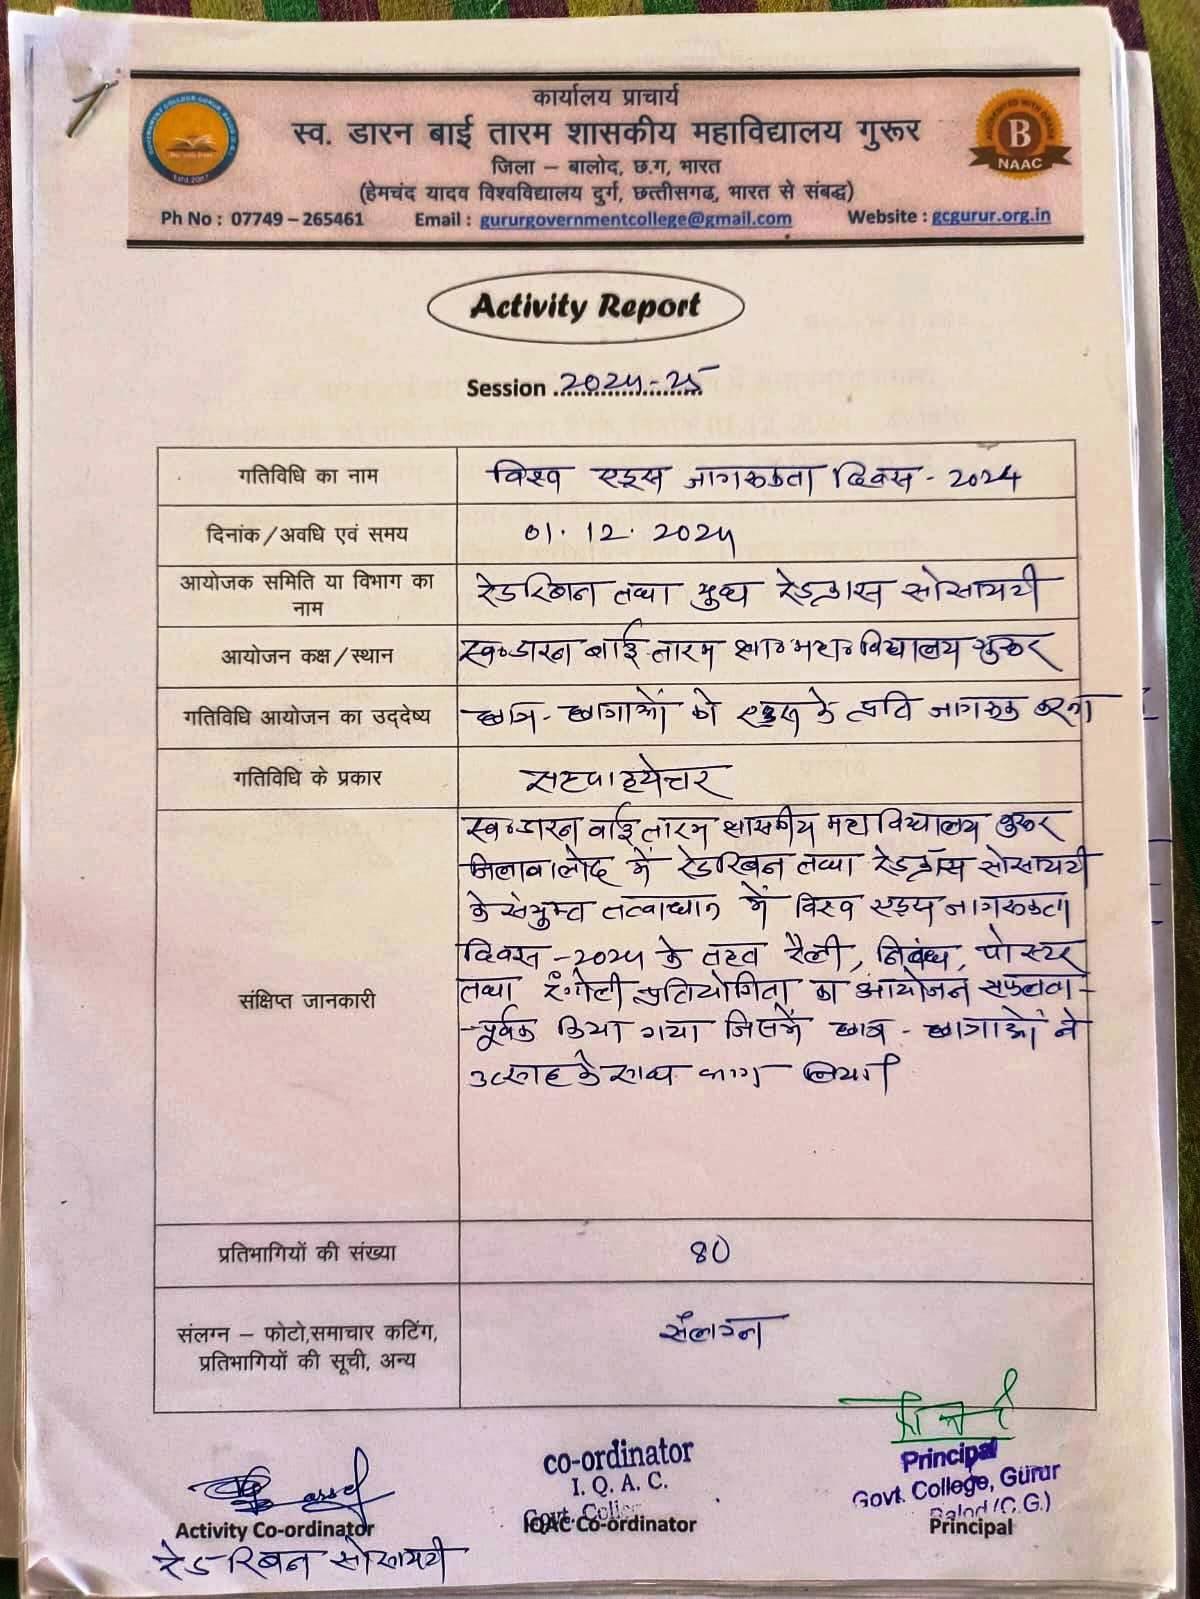 कार्यालय प्राचार्य
स्व. डारन बाई तारम शासकीय महाविद्यालय गुरूर
जिला – बालोद, छ.ग, भारत
(हेमचंद यादव विश्वविद्यालय दुर्ग, छत्तीसगढ, भारत से संबद्ध)
Ph No : 07749 – 265461 Email : gururgovernmentcollege@gmail.com Website : gcgurur.org.in
B
NAAC
Activity Report
Session 2024-25
गतिविधि का नाम विश्व एड्स जागरूकता दिवस - 2024
दिनांक/अवधि एवं समय 01.12.2024
आयोजक समिति या विभाग का
नाम
रेडरिबन तथा युथ रेडक्रास सोसायटी
आयोजन कक्ष/स्थान स्व० डारन बाई तारम शा० महा० विद्यालय गुरूर
गतिविधि आयोजन का उद्देष्य छात्र - छात्राओं को एड्स के प्रति जागरूक करना
गतिविधि के प्रकार सहपाठ्येत्तर
संक्षिप्त जानकारी
स्व० डारन बाई तारम शासकीय महाविद्यालय गुरूर
जिला बालोद में रेडरिबन तथा रेडक्रॉस सोसायटी
के संयुक्त तत्वाधान में विश्व एड्स जागरूकता
दिवस - 2024 के तहत रैली, निबंध, पोस्टर
तथा रंगोली प्रतियोगिता का आयोजन सफलता-
-पूर्वक किया गया जिसमें छात्र - छात्राओं ने
उत्साह के साथ भाग लिया।
प्रतिभागियों की संख्या 80
संलग्न – फोटो,समाचार कटिंग,
प्रतिभागियों की सूची, अन्य
संलग्न
co-ordinator
I. Q. A. C.
Principal
Govt. College, Gurur
Balod (C.G.)
Activity Co-ordinator IQAC Co-ordinator Principal
रेड रिबन सोसायटी